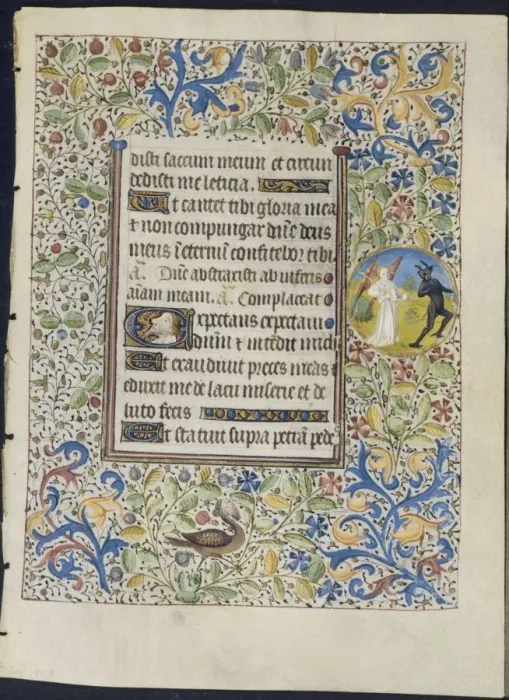 disti saccum meum et circun
dedisti me leticia.
Ut cantet tibi gloria mea
t non compungar dñe deus
meus i eternū confitebor tibi
A. Dñe abstraxisti ab inferis
aīam meam. A. Complaceat
Expectans expectaui
dñum t intēdit michi
Et exaudiuit preces meas t
eduxit me de lacu miserie et de
luto fecis
Et statuit supra petrā pede